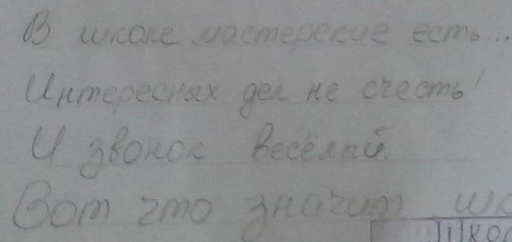 В школе мастерские есть...
Интересных дел не счесть!
И звонок весёлый.
Вот что значит шко